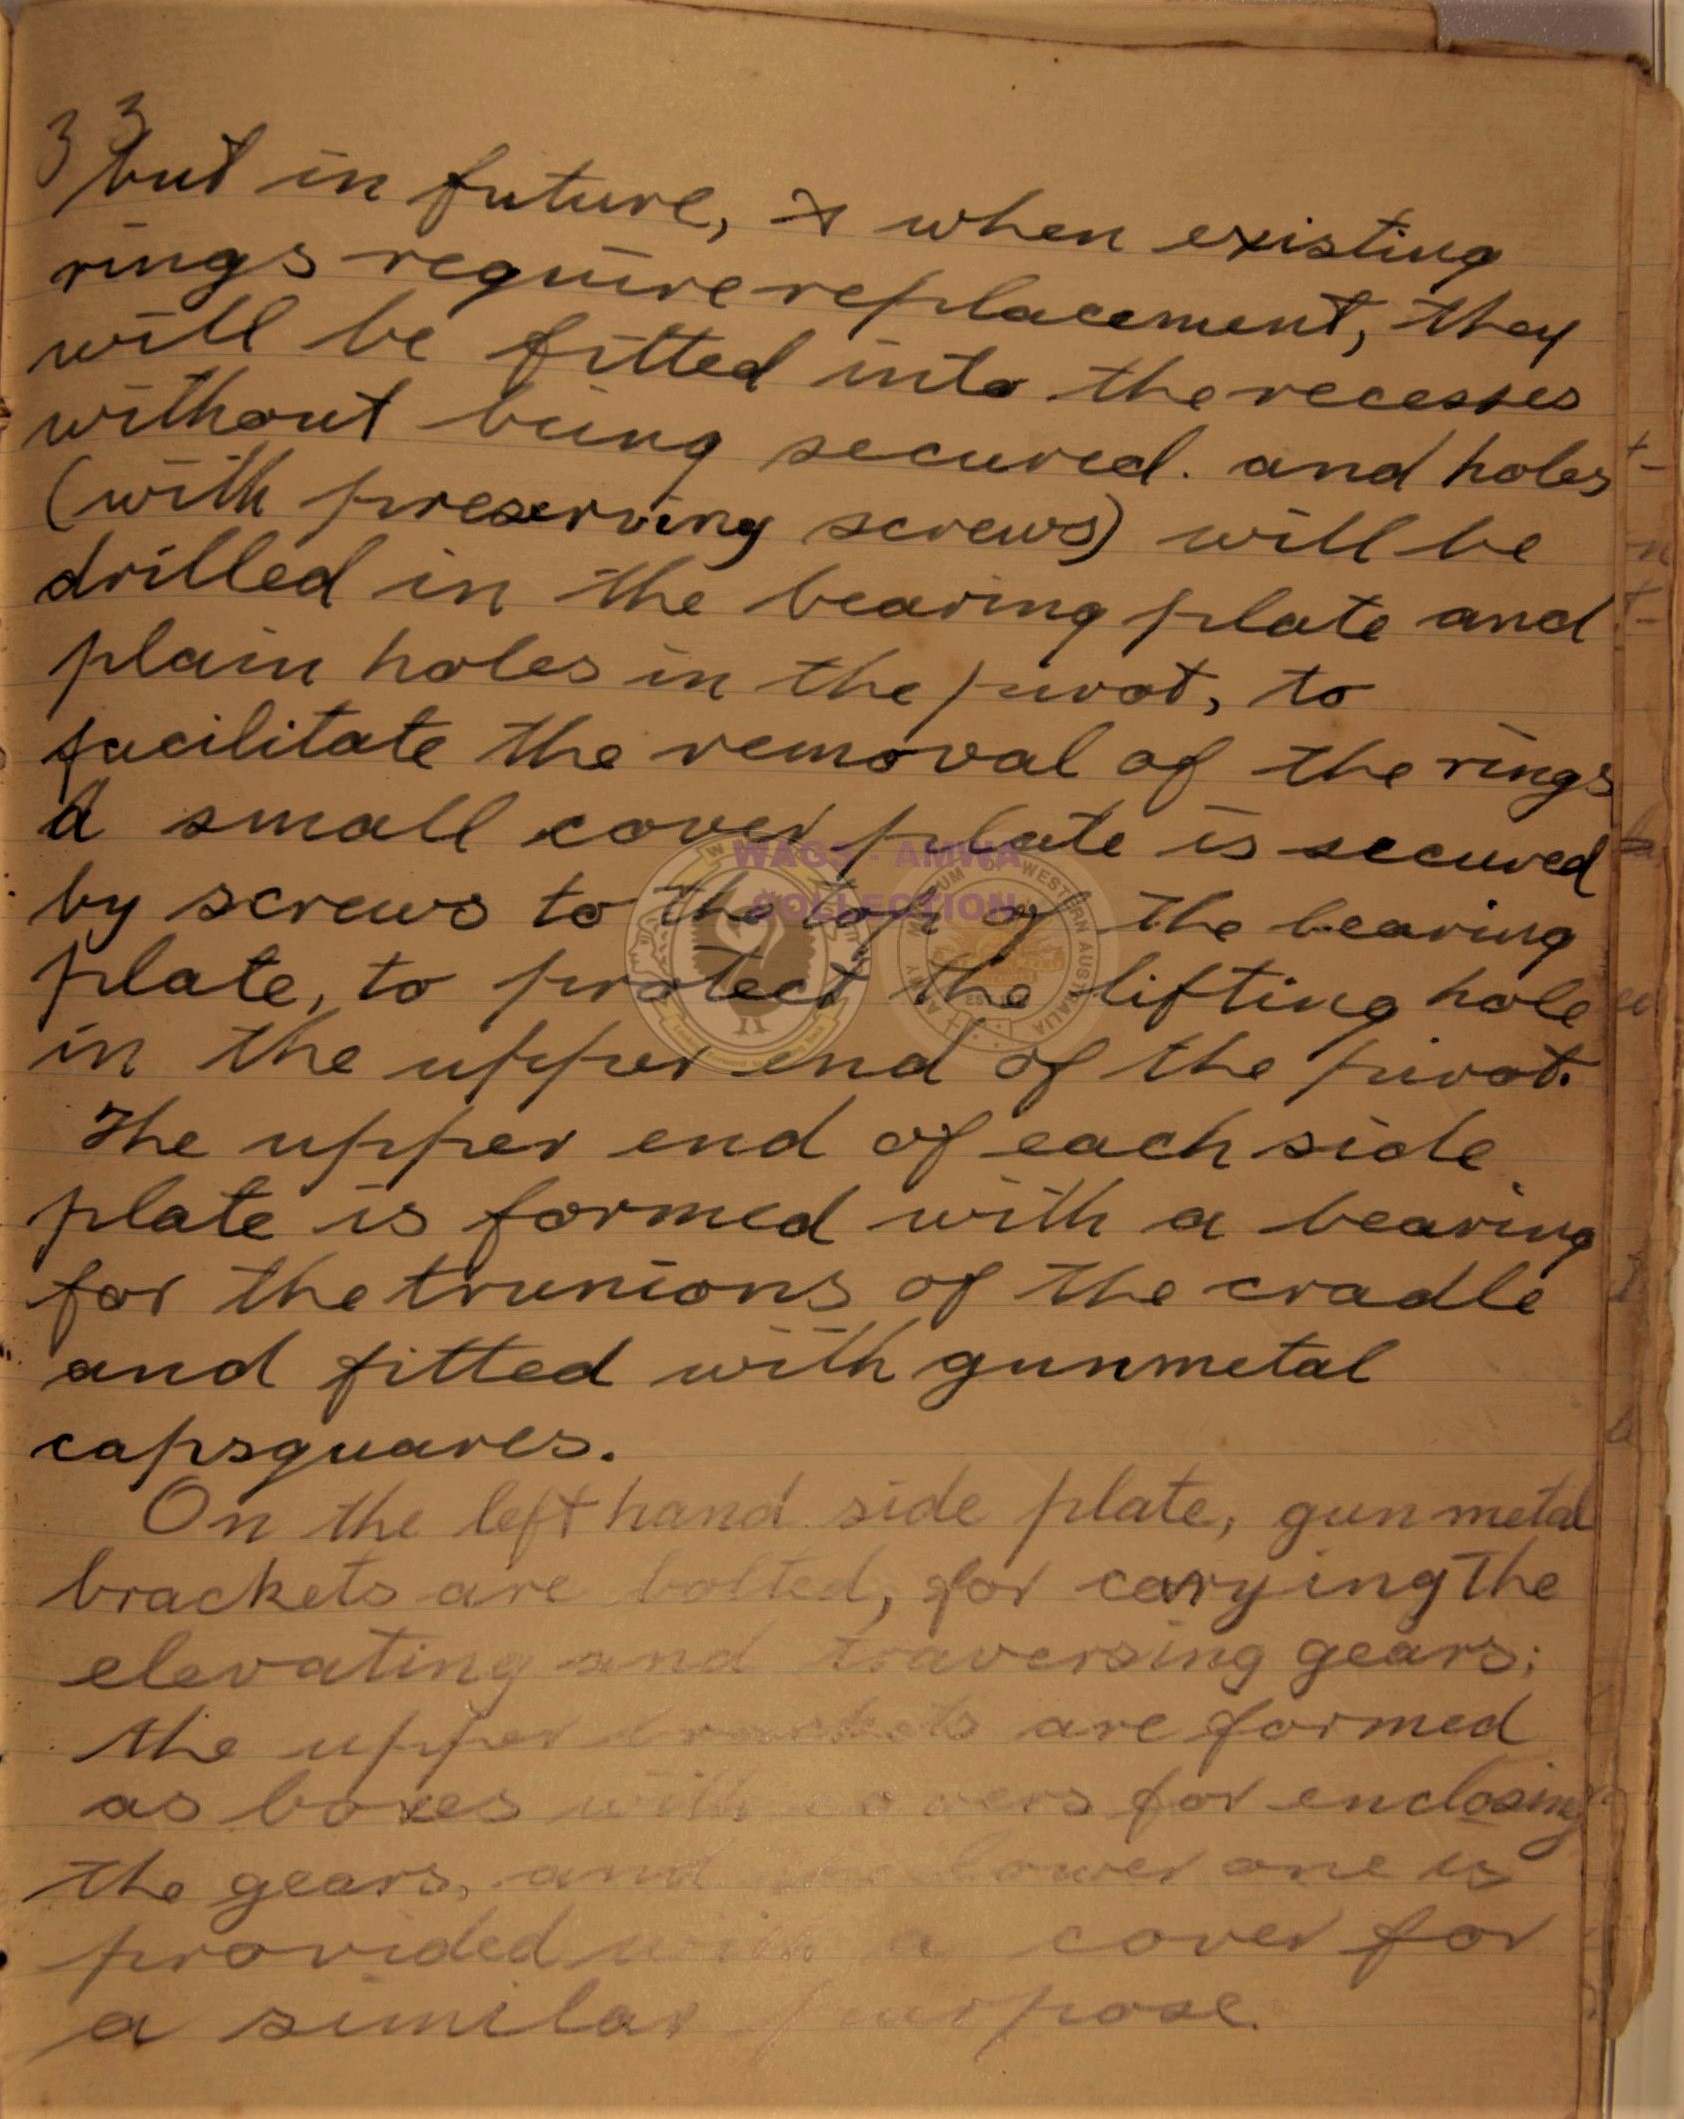 33
but in future, & when existing
rings require replacement, they
will be fitted into the recesses
without being secured. and holes
(with preserving screws) will be
drilled in the bearing plate and
plain holes in the pivot, to
facilitate the removal of the rings
A small cover plate is secured
by screws to the top of the bearing
plate, to protect the lifting hole
in the upper end of the pivot.
The upper end of each side
plate is formed with a bearing
for the trunions of the cradle
and fitted with gunmetal
capsquares.
On the left hand side plate, gun metal
brackets are bolted, for carying the
elevating and traversing gears;
the upper brackets are formed
as boxes with covers for enclosing
the gears, and the lower one is
provided with a cover for
a similar purpose.
WAGS - AMWA
COLLECTION
ARMY MUSEUM OF WESTERN AUSTRALIA